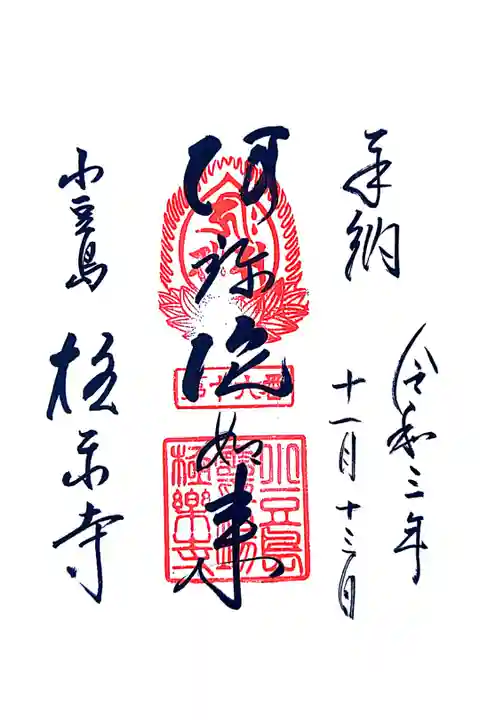 奉納
令和三年
十一月十三日
阿弥陀如来
第十六番
小豆島
霊場
極樂寺
小豆島
極楽寺